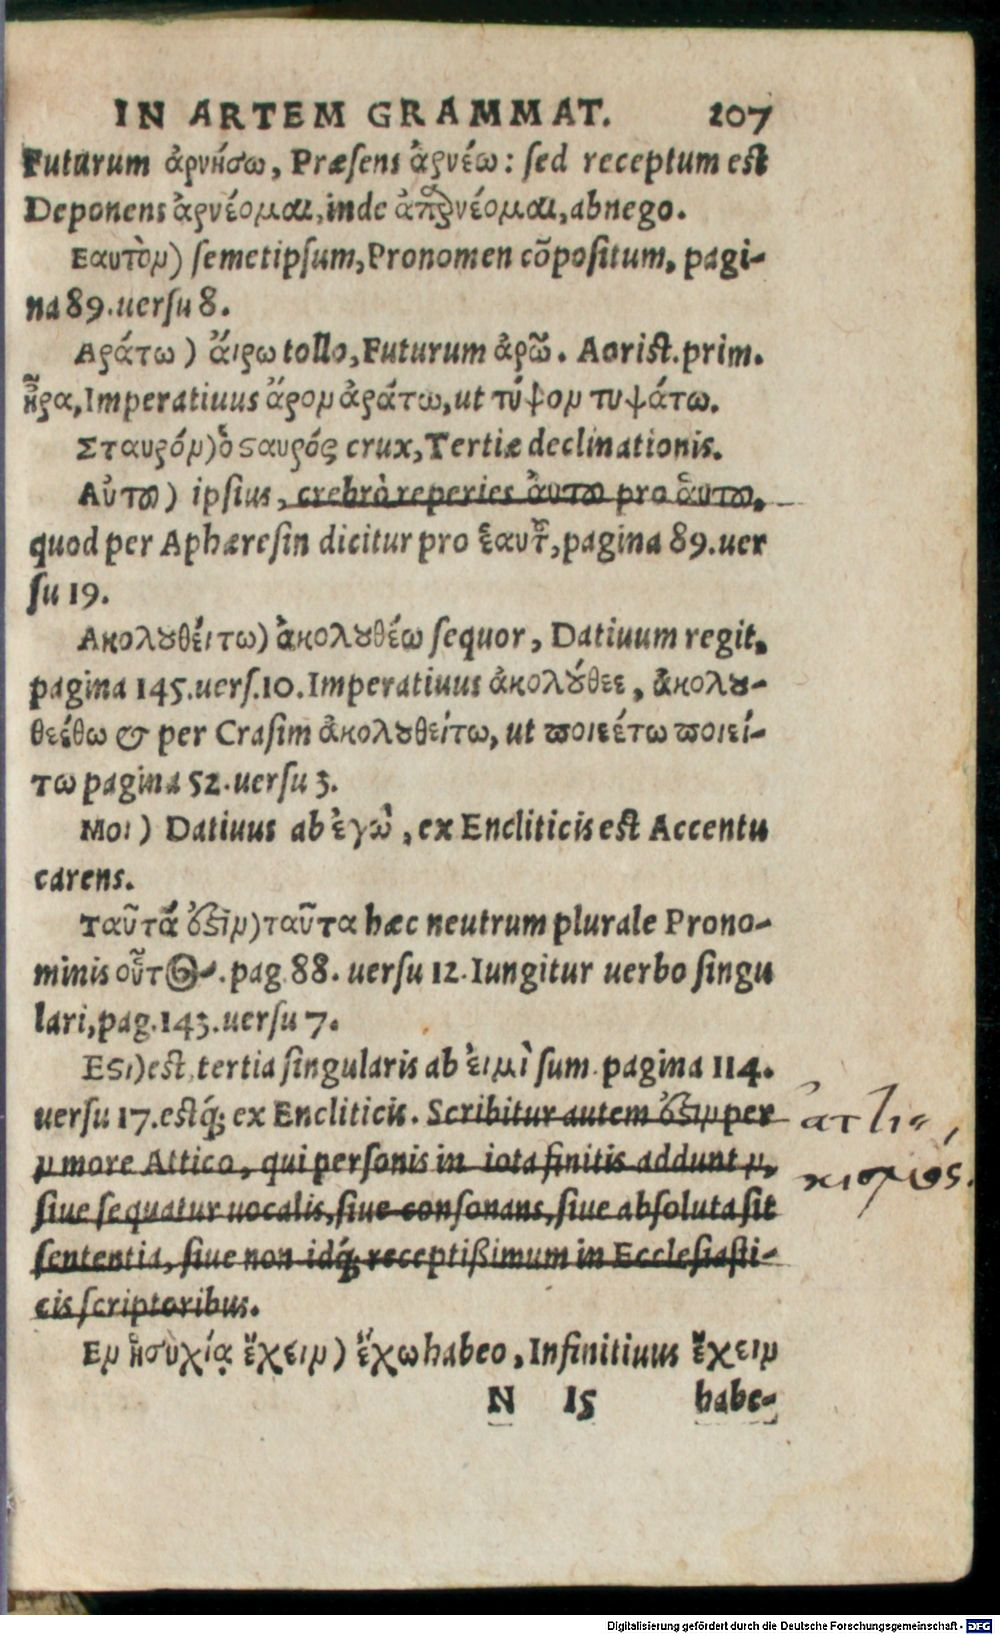 IN ARTEM GRAMMAT. 207
Futurum ἀρνήσω, Præsens ἀρνέω: sed receptum est
Deponens ἀρνέομαι, inde ἀπαρνέομαι, abnego.
Εαυτὸν) semetipsum, Pronomen cõpositum, pagi-
na 89. uersu 8.
Αράτω) ἄιρω tollo, Futurum ἀρῶ. Aorist. prim.
ἦρα, Imperatiuus ἄρον ἀράτω, ut τύψον τυψάτω.
Σταυρόν) ὁ ϛαυρός crux, Tertiæ declinationis.
Αὐτȣ) ipsius, crebrò reperies ἁυτȣ pro ἁυτȣ,
quod per Aphæresin dicitur pro ἑαυτȣ͂, pagina 89. uer
su 19.
Ακολȣθείτω) ἀκολȣθέω sequor, Datiuum regit,
pagina 145. uers. 10. Imperatiuus ἀκολȣ́θεε, ἀκολȣ-
θεέθω & per Crasim ἀκολȣθείτω, ut ποιεέτω ποιεί-
τω pagina 52. uersu 3.
Μοι) Datiuus ab ἐγὼ, ex Encliticis est Accentu
carens.
Ταῦτά ὅξιν) ταῦτα hæc neutrum plurale Prono-
minis οὗτος. pag. 88. uersu 12. Iungitur uerbo singu
lari, pag. 143. uersu 7.
Εϛι) est, tertia singularis ab ἐιμὶ sum. pagina 114.
uersu 17. estq́; ex Encliticis. Scribitur autem ὅξιν per
ν more Attico, qui personis in iota finitis addunt ν,
siue sequatur uocalis, siue consonans, siue absoluta sit
sententia, siue non idq́; receptißimum in Ecclesiasti-
cis scriptoribus.
Εν ἡσυχίᾳ ἔχειν) ἔχω habeo, Infinitiuus ἔχειν
N 15 habe-
ἀττι-
κισμός.
Digitalisierung gefördert durch die Deutsche Forschungsgemeinschaft - DFG